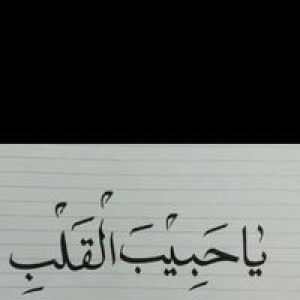 يَا حَبِيْبَ الْقَلْبِ